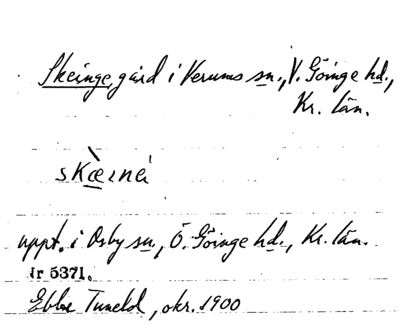 Skeinge, gård i Verums sn., V. Göinge hd.,
Kr. län.
uppt. i Osby sn., Ö. Göinge hd., Kr. län.
Nr 5371.
Ebbe Tuneld, okr. 1900